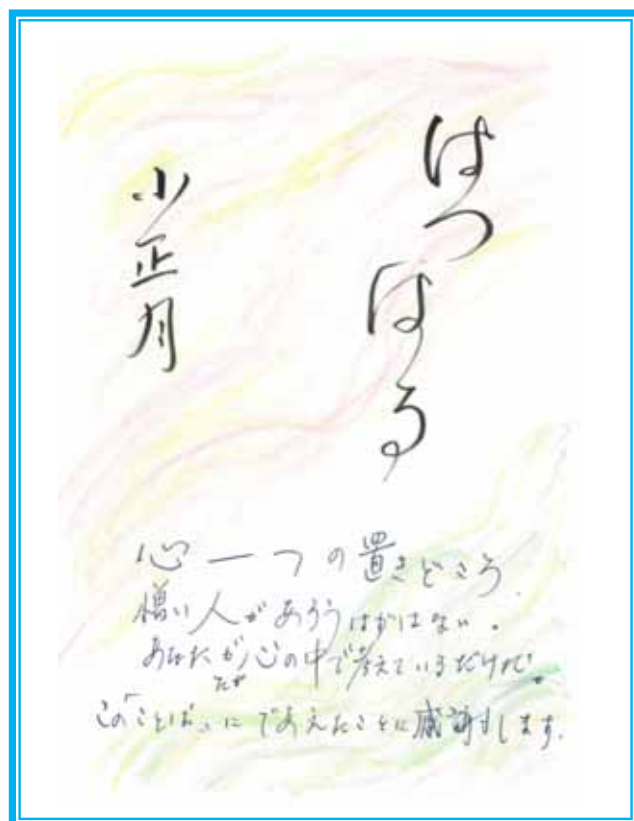 はつはる
小正月
心一つの置きどころ
憎い人があろうはずはない。
あなたが心の中で考えているだけだ。
ただ
この「ことば」にであえたことに感謝します。